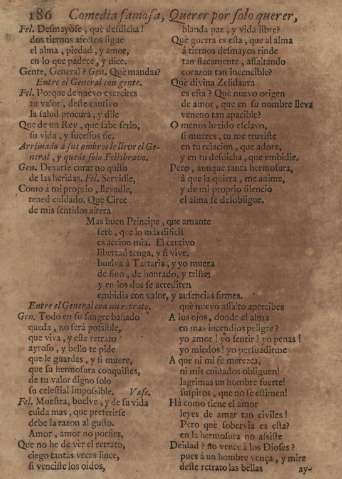 186 Comedia famosa, Querer por solo querer,
Fel. Desmayòse, què desdicha!
dos tiernos afectos sigue
el alma, piedad, y amor,
en lo que padece, y dice.
Gente, General? Gen. Què mandas?
Entre el General con gente.
Fel. Porque de nuevo exercites
tu valor, deste cautivo
la salud procura, y dile
Que de un Rey, que sabe serlo,
su vida, y sucessos fie.
Arrimado à sus ombros le lleve el General, y quede solo Felisbravo.
Gen. Dexarte curar no quiso
de las heridas. Fel. Servidle,
Como à mi proprio, llevadle,
tened cuidado. Que Circe
de mis sentidos
Mas buen Principe, que amante
serè, que lo mas dificil
es accion mia. El cautivo
libertad tenga, y si vive,
buelva à Tartaria, y yo muera
de fino, de honrado, y triste;
y en los dos se acrediten
embidia con valor, y ausencias firmes.
Entre el General con un retrato.
Gen. Todo en su sangre bañado
queda, no serà possible,
que viva, y este retrato
ayroso, y bello te pide
que le guardes, y si muere,
que su hermosura conquistes,
de tu valor digno solo
su celestial impossible. Vase.
Fel. Morisca, buelve, y de su vida
cuida mas, que preferirse
debe la razon al gusto.
Amor, amor no porfies,
Que no he de ver el retrato,
ciego tantas veces lince,
si venciste los oidos,
blanda paz, y vida libre?
Què guerra es esta, que al alma
à tiernos desmayos rinde
tan flacamente, assaltando
corazon tan invencible?
Què divina Zelidaura
es esta? Què nuevo origen
de amor, que en su nombre lleva
veneno tan apacible?
O menos herido esclavo,
si mueres, tu me truxiste
en tu relacion, que adore,
y en tu desdicha, que embidie.
Pero, aunque tanta hermosura,
à que la quiera, me anime,
y de mi proprio silencio
el alma se desobligue.
què nuevo assalto apercibes
A los ojos, donde el alma
en mas incendios peligre?
yo amor! yo sentir! yo penas!
yo miedos! yo persuadirme
A que ni mi fè merezca,
ni mis cuidados obliguen!
lagrimas un hombre fuerte!
suspiros, que no se estimen!
Hà como tiene el amor
leyes de amar tan civiles!
Pero què sobervia es esta?
en la hermosura no assiste
Deidad? no vence à los Dioses?
pues à un hombre venza, y mire
deste retrato las bellas
ay-